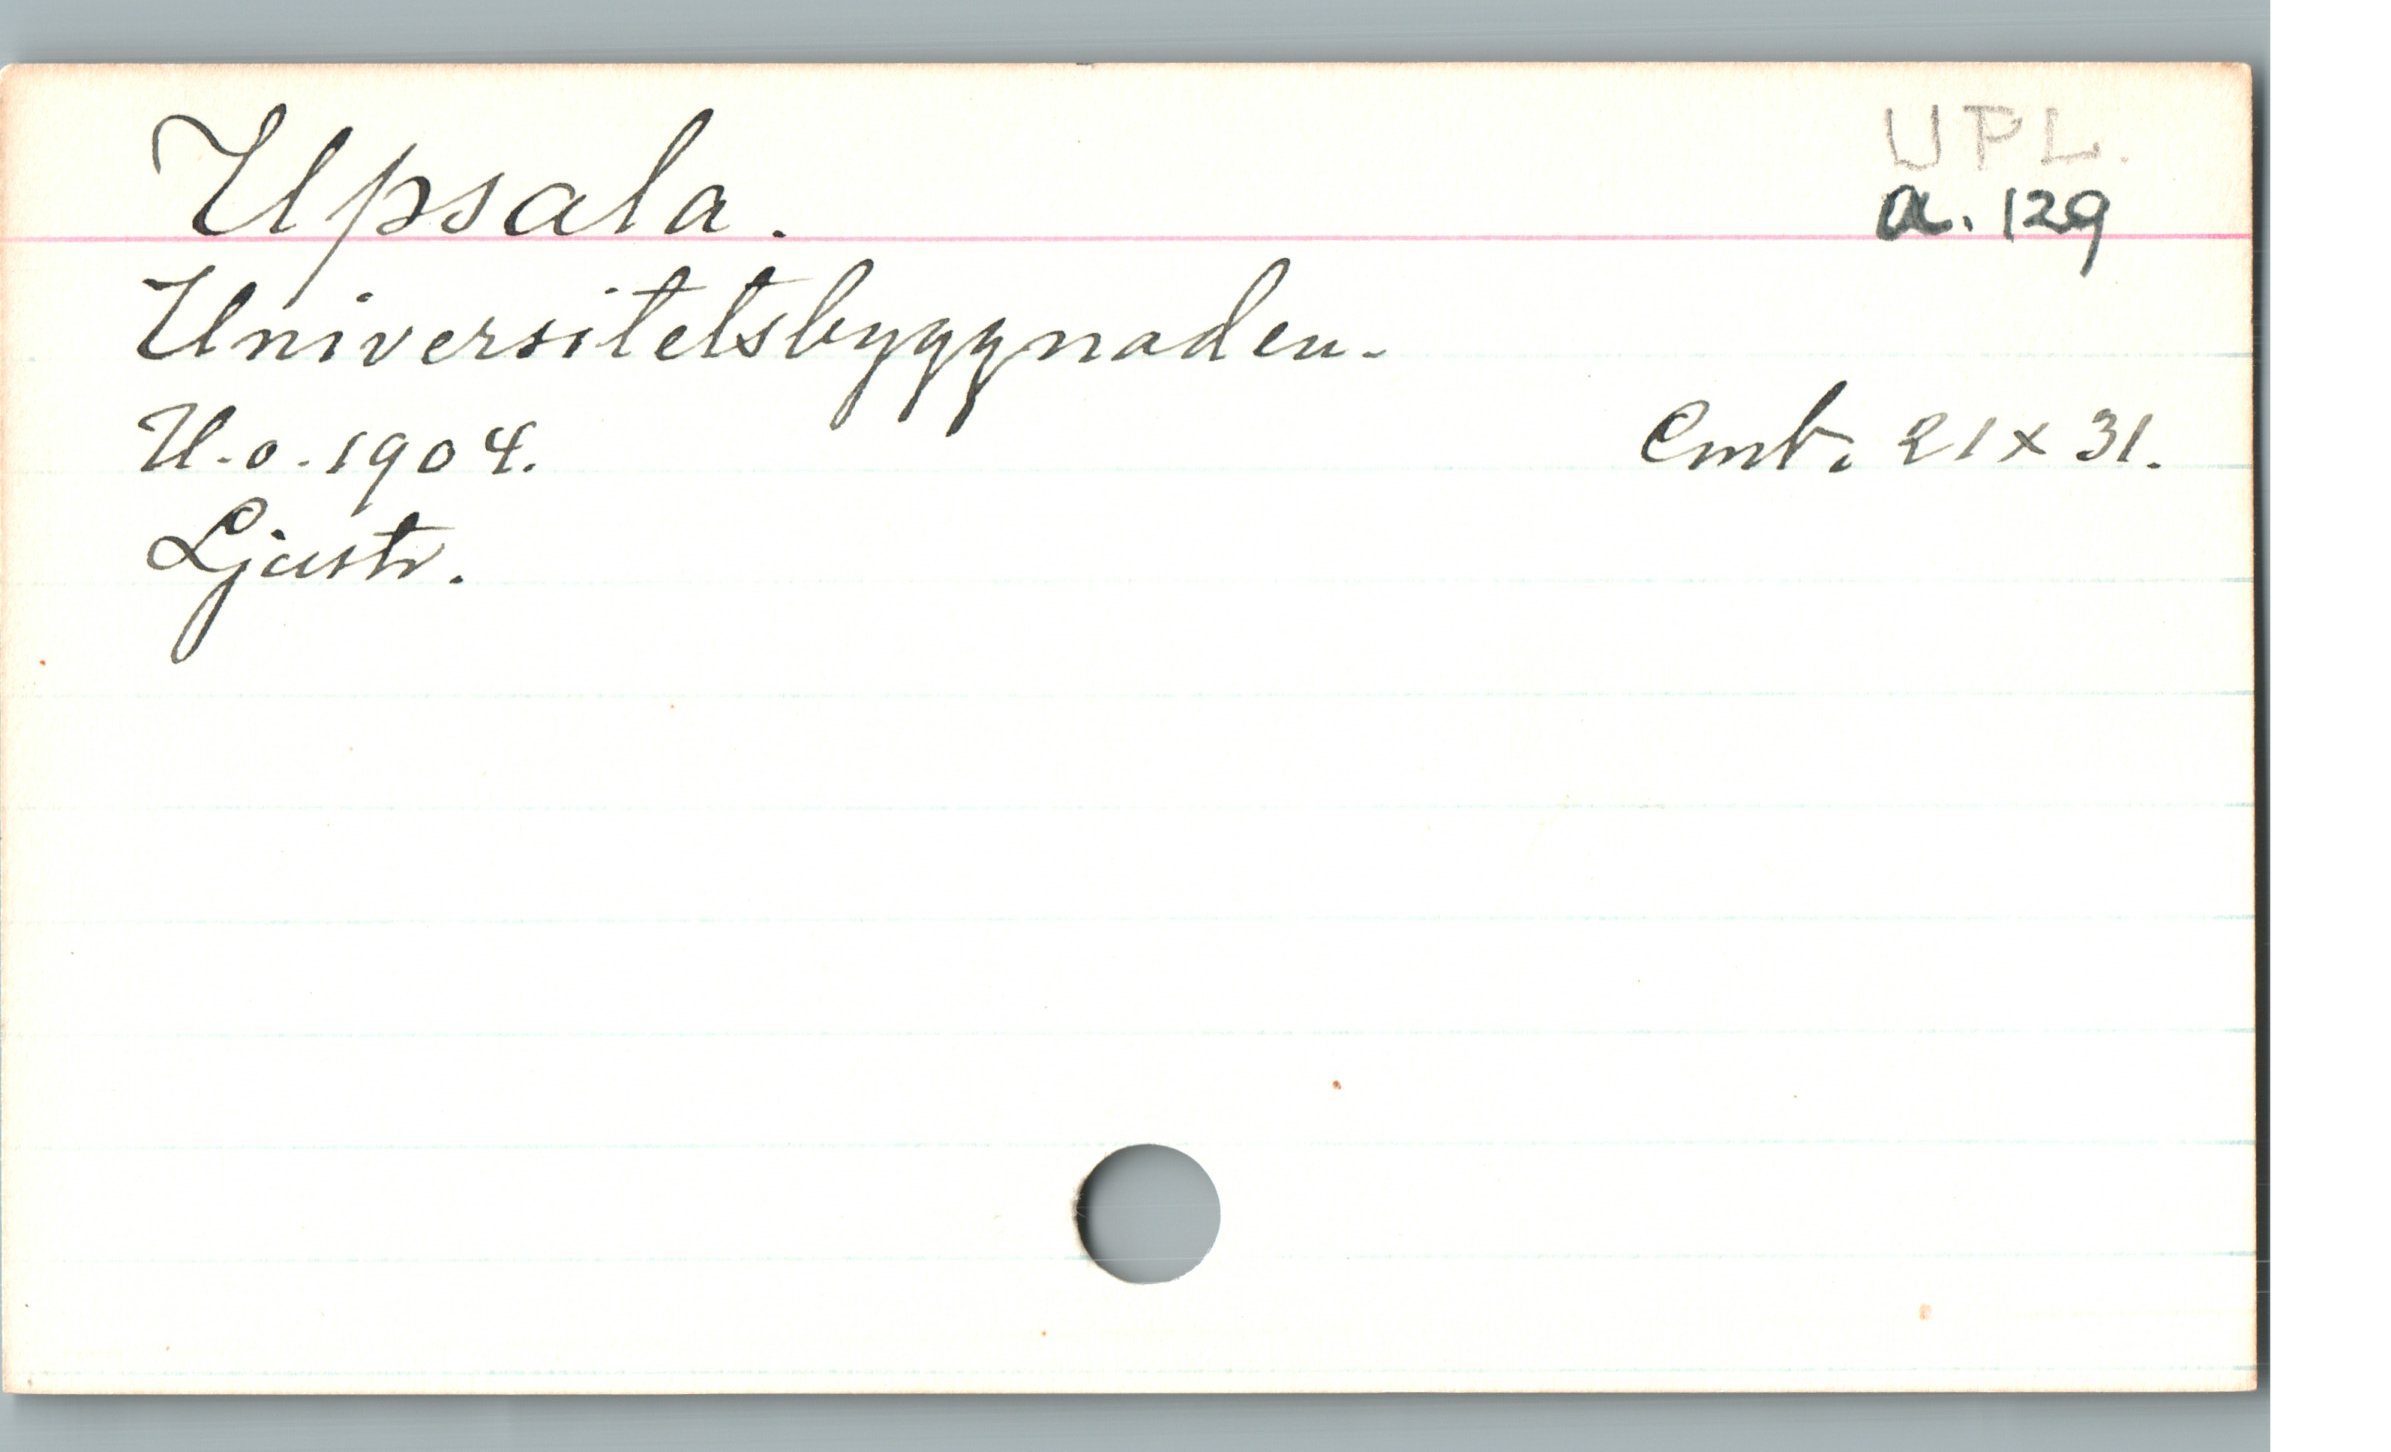 Upsala.
UPL.
a. 129
Universitetsbyggnaden.
U.o. 1904.
Cmb. 21 x 31.
Ljustr.